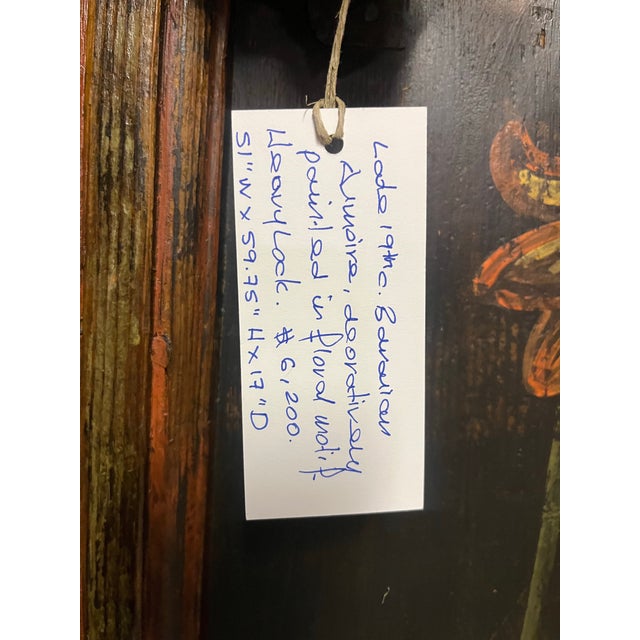 Late 19th c. Bavarian
Armoire, decoratively
painted in floral motif.
Heavy Lock. $6,200.
51"W x 59.75"H x 17"D